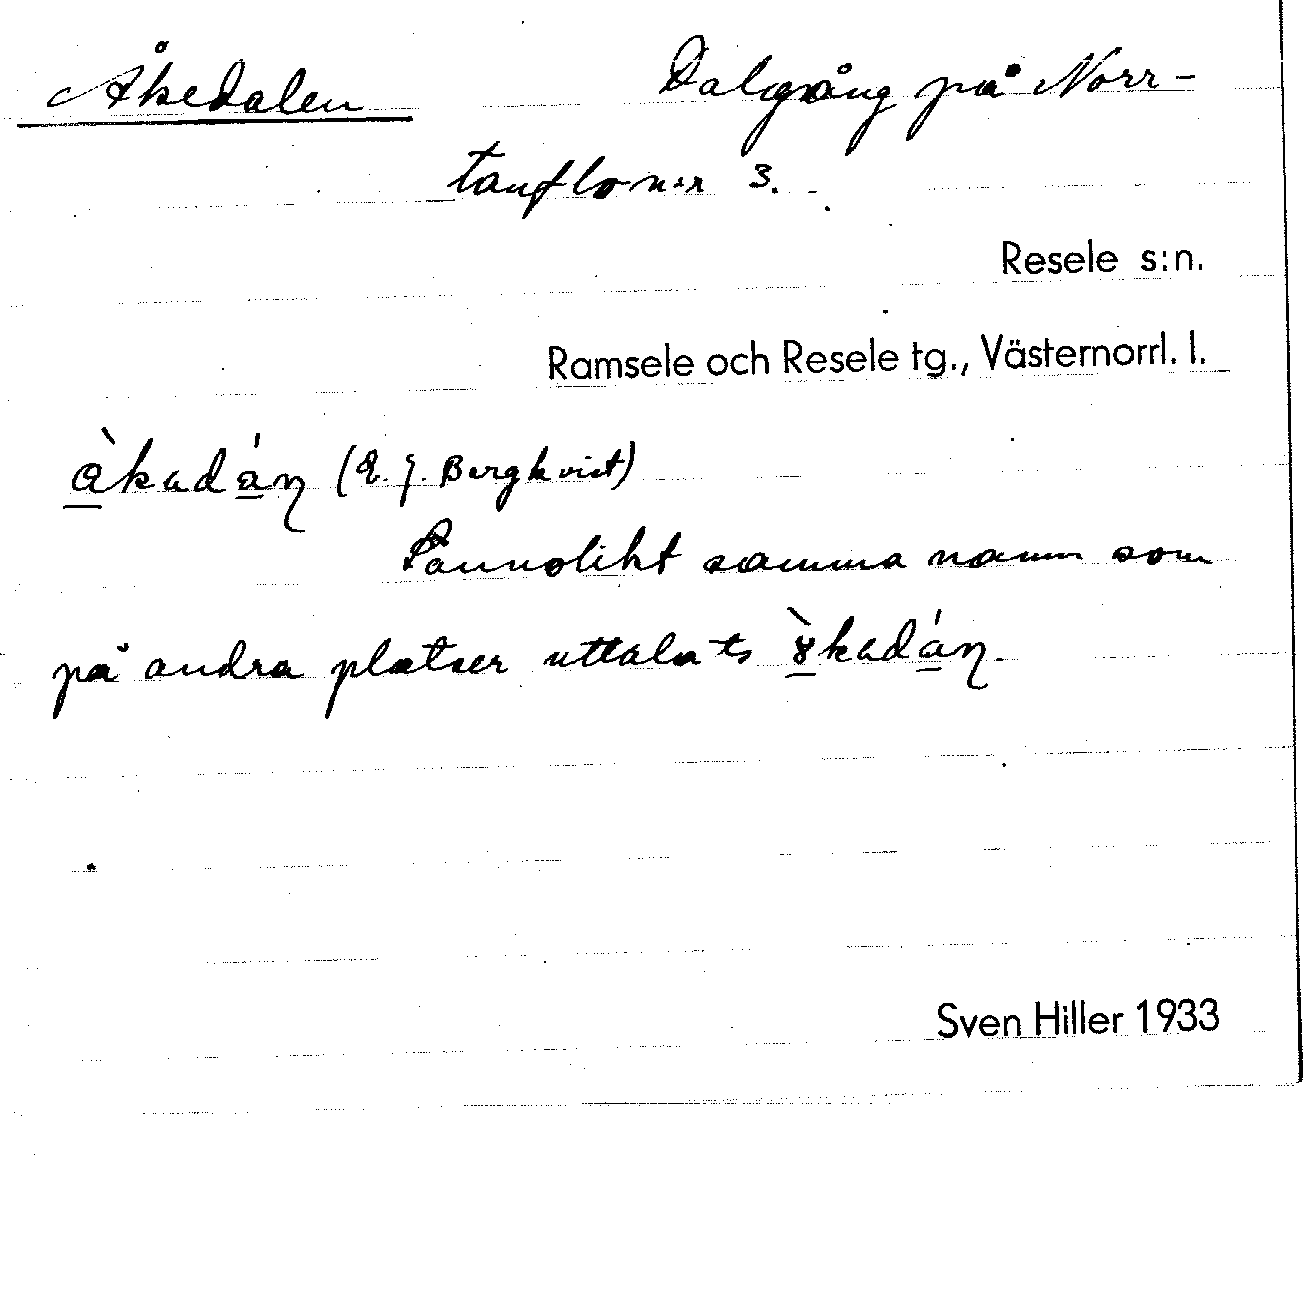 Åkedalen Dalgång på Norr-
tanflo n:r 3.
Resele s:n.
Ramsele och Resele tg., Västernorrl. l.
à̱kadá̱ŋ (E. J. Bergkvist)
Sannolikt samma namn som
på andra platser uttalats ɤ̱̀kadá̱ŋ.
Sven Hiller 1933